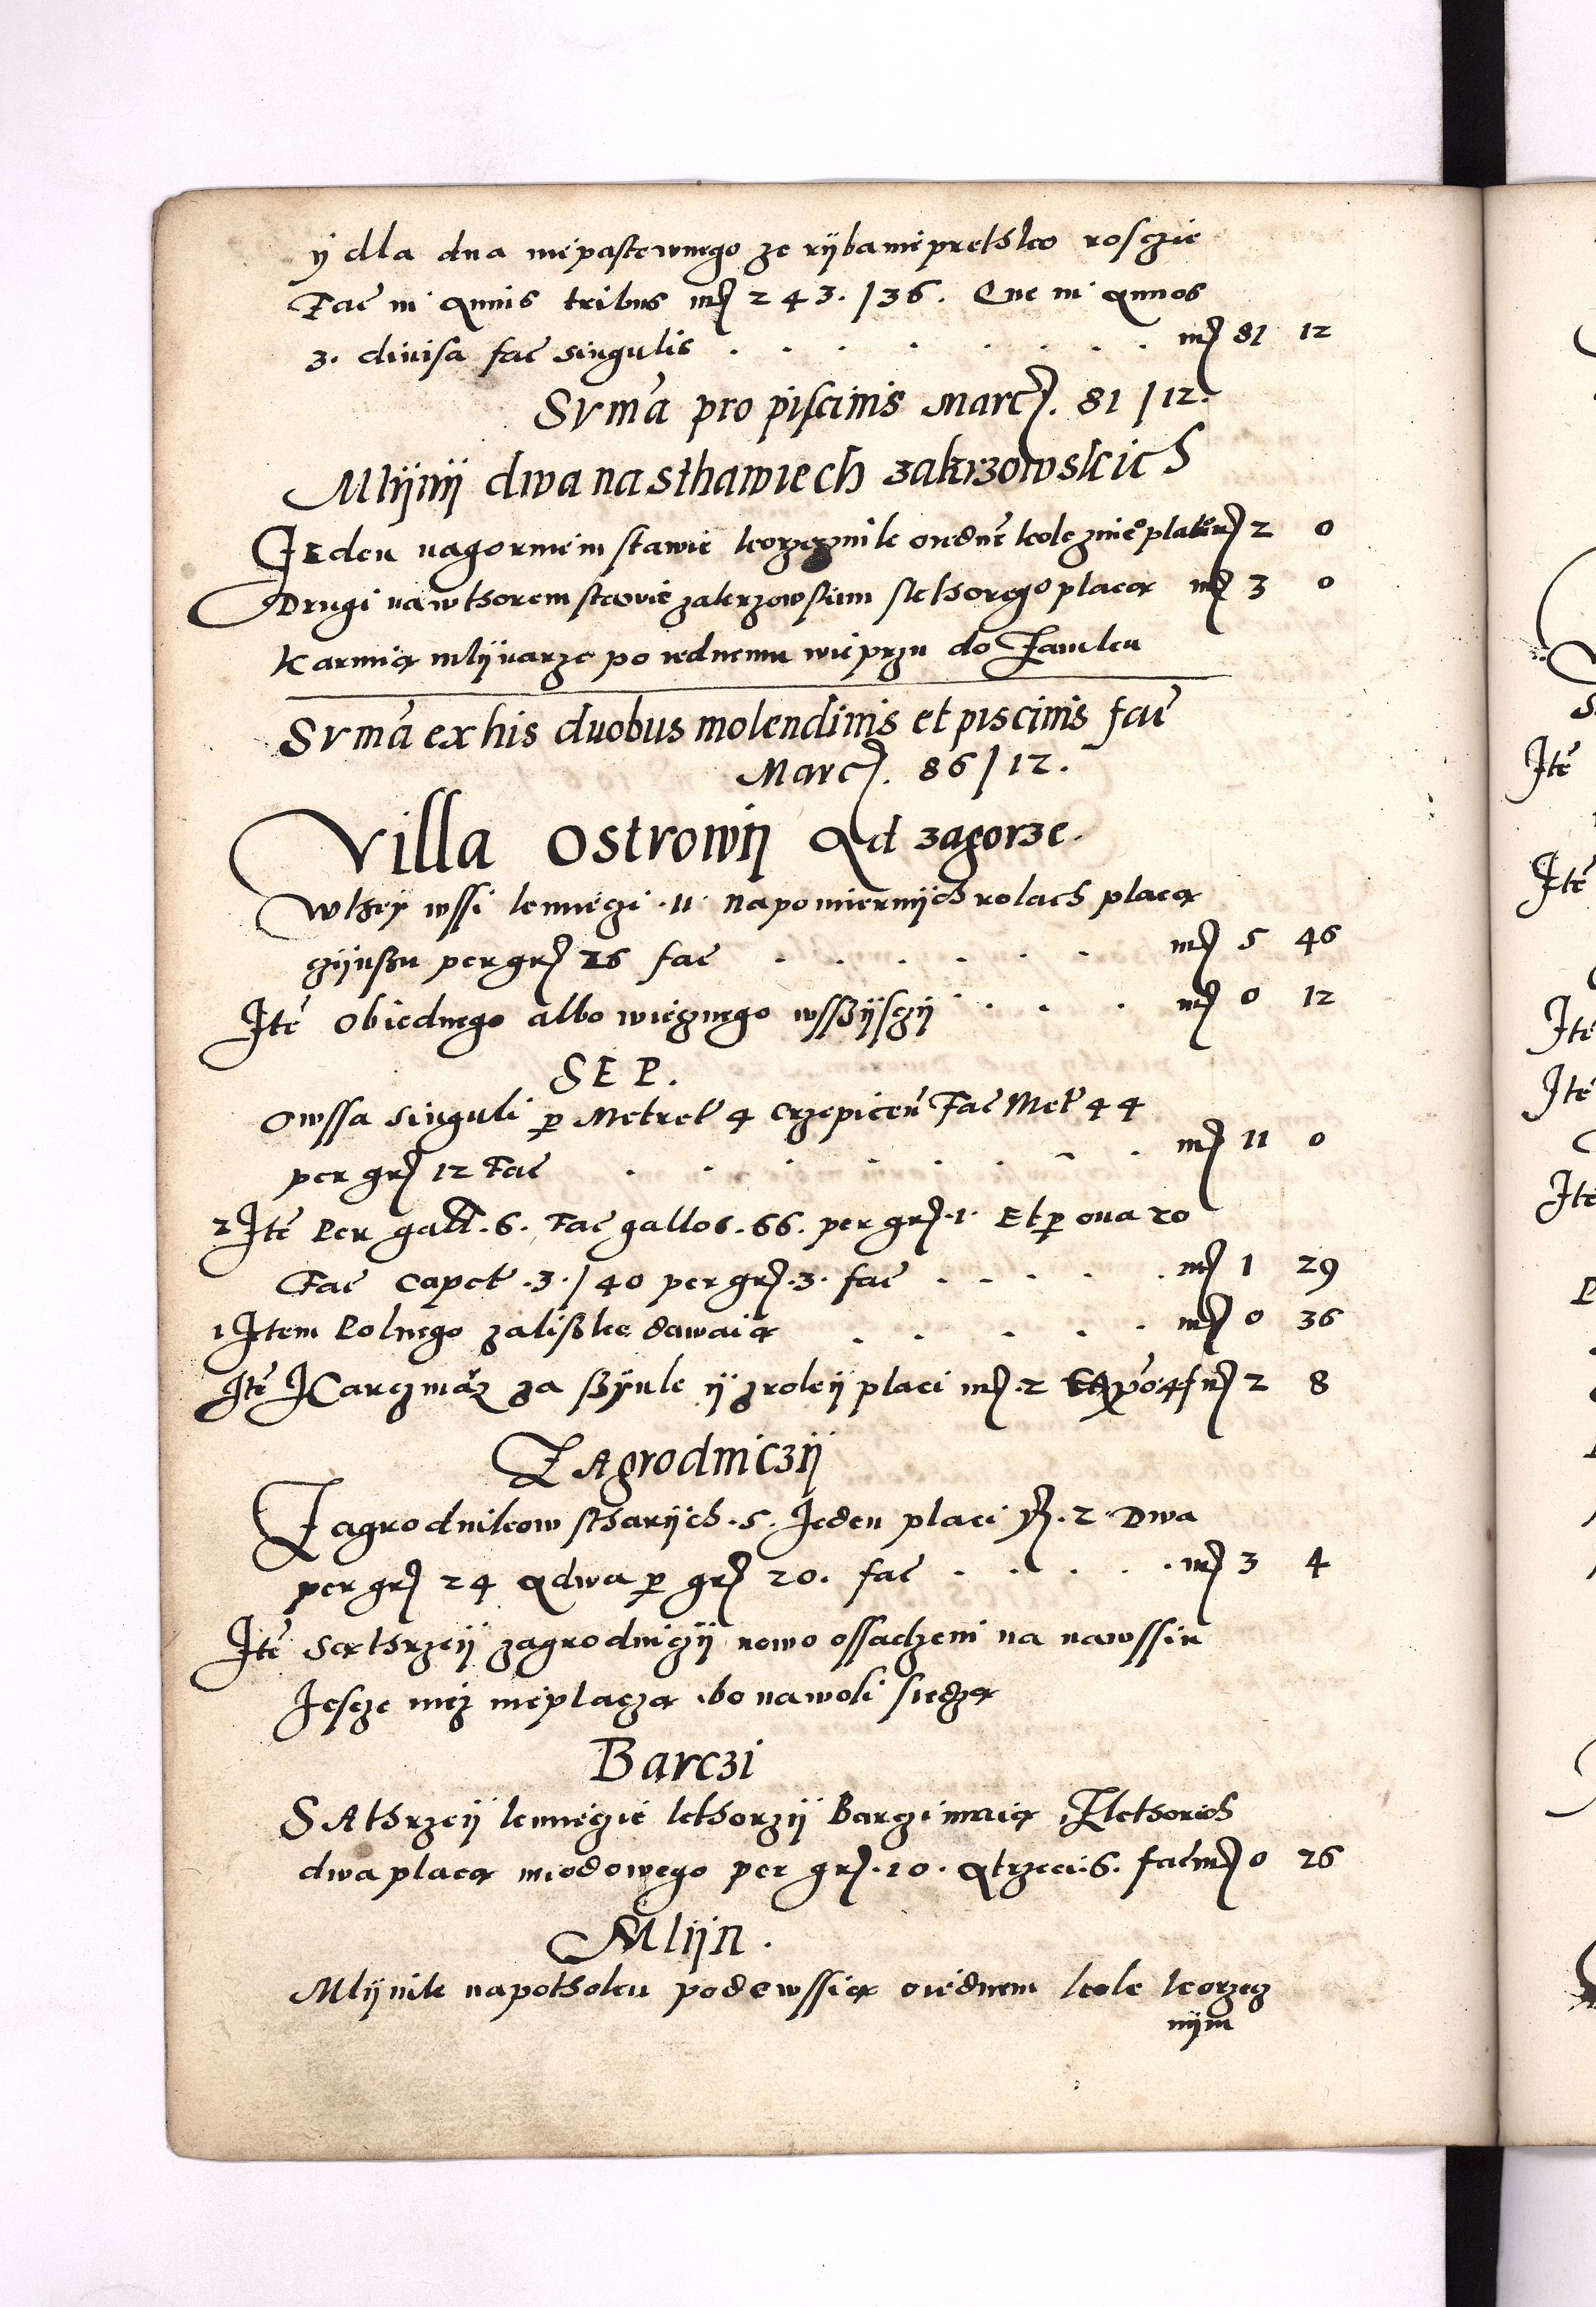 ÿ dla dna niepastewnego ze rÿbamẏ prethko rosczie
Fac̃ in Annis tribus mr̃ 243. / 36. Que in Annos
3. diuisa fac̃ singulis . . . . . . . . mr̃ 81 12
Svm̃a pro piscinis Marcr̃. 81 / 12.
Mlÿnÿ dwa na sthawiech zakrzowskich
Jeden na gorniem stawie korzecznik o iednẽ kole z nieo placã mr̃ 2 0
Drugi na wthorem stawie zakrzowskim skthorego placą mr̃ 3 0
Karmią mlÿnarze po iednemu wieprzu do Famku
Svm̃a ex his duobus molendinis et piscinis fac̃
Marcr̃. 86 / 12.
Villa Ostrowÿ Ad zagorze.
W they wssi kmieczi .11. na pomiernÿch rolach placą
czÿnssu per gr̃ 26 fac̃ . . . . . . mr̃ 5 46
Itẽ Obiednego albo wiecznego wsszÿsczÿ . . . mr̃ 0 12
SEP.
Owssa singuli p Metret 4 Crzepiceñ Fac̃ Met 44
per gr̃ 12 Fac̃ . . . . . . . . mr̃ 11 0
2 Itẽ Per gall .6. Fac̃ gallos .66. per gr̃ .1. Et p oua 20
Fac̃ Capet .3. / 40 per gr̃ .3. fac̃ . . . . . mr̃ 1 29
1 Item Polnego zalissku dawaią . . . . . mr̃ 0 36
Itẽ Karczmarz za szÿnk ÿ z rolej placi mr̃ .2 mr̃ 2 8
Zagrodniczÿ
Zagrodnikow stharÿch .5. Jeden placi .2 Dwa
per gr̃ 24 A dwa p gr̃ 20. fac̃ . . . . . mr̃ 3 4
Itẽ Są thrzeÿ zagrodniczÿ nowo ossadzeni na nawssiu
Jescze nicz nie placzą .bo na woli siedzą
Barczi
SA thrzeÿ kmieczie kthorzÿ Barczi maią Z kthorich
dwa placą miodowego per gr̃ .10. A trzeci .6. fac̃ mr̃ 0 26
Mlÿn.
Mlÿnik na pothoku pode wssią o iednem kole korzecz
nÿm